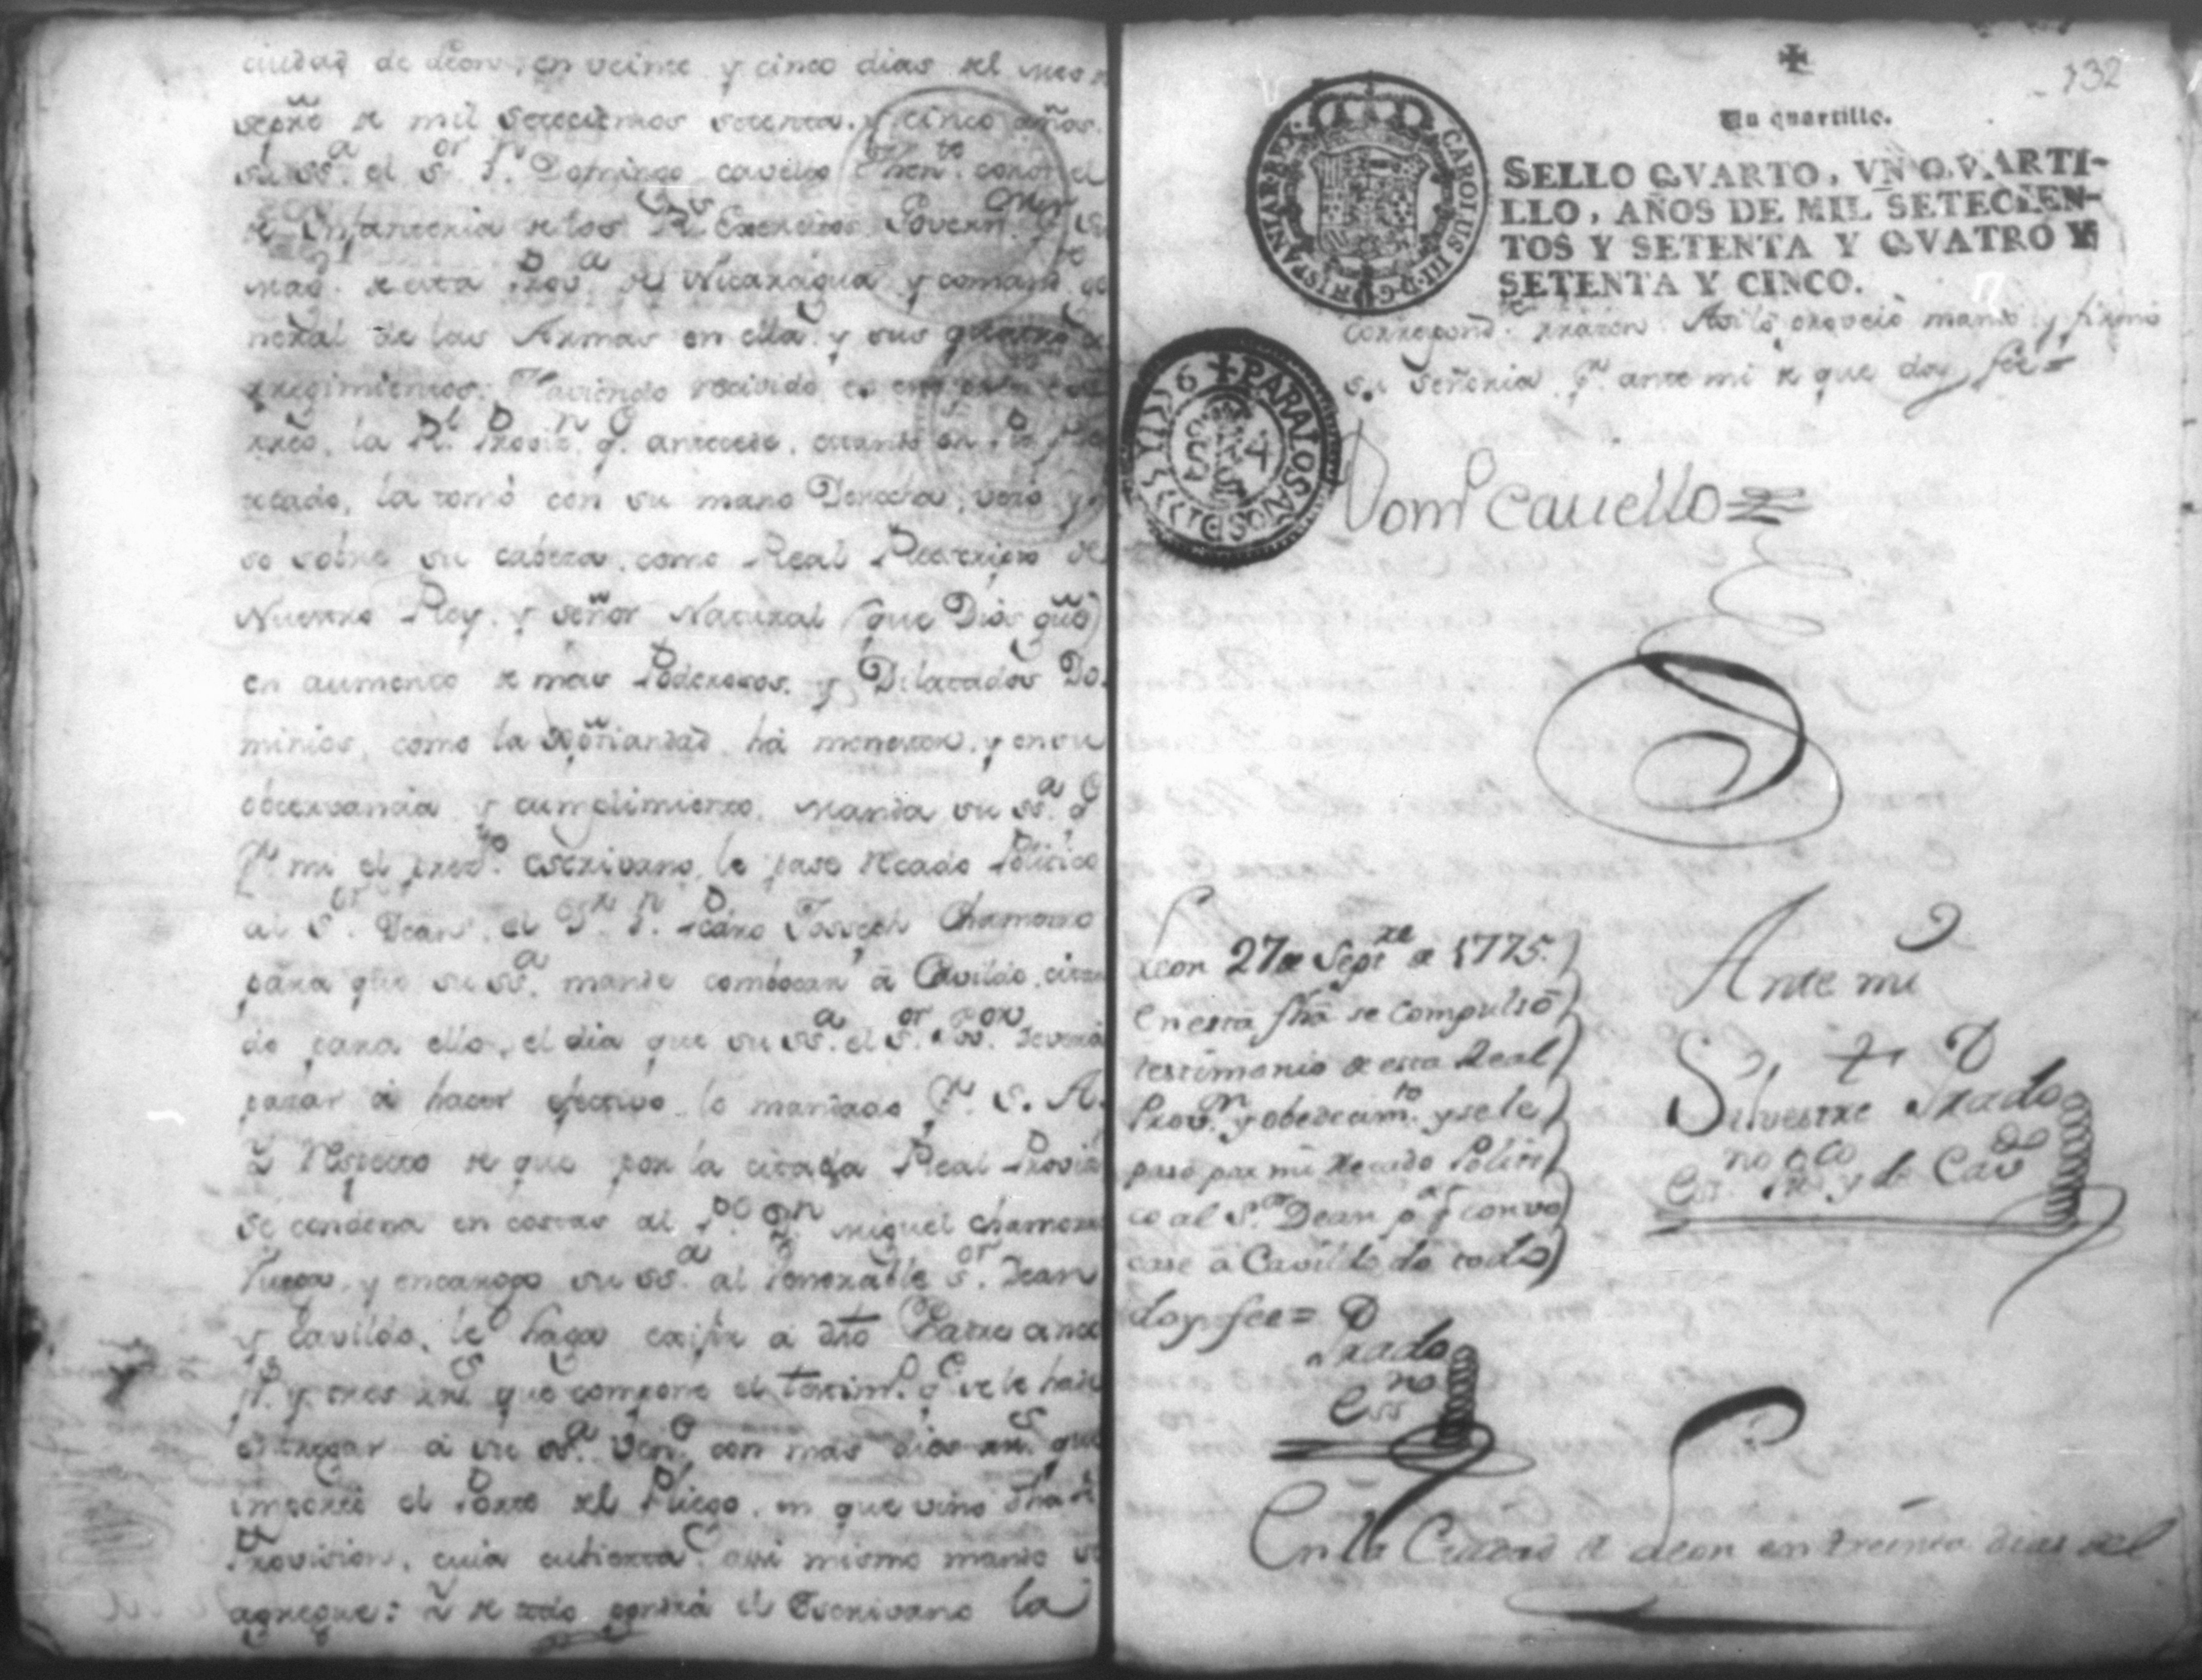 ciudad de Leon, en veinte y cinco dias del mes de
sepre de mil setecientos setenta, y cinco años.
su ssa. el sor. Dn. Domingo cavello Thente. coronel
de Infanteria de los Rs. Exercitos Governor. y
de esta Prova. de Nicaragua y comandte. ge
neral de las Armas en ella y sus quatro co
rregimientos: Haviendo recivido
rreo, la Rl. Provin. q. antecede,
tado, la tomó con su mano Derecha, vesó y
so sobre su cabeza, como Real Rescripto de
Nuestro Rey, y señor Natural (que Dios gue)
en aumento de mas Poderosos, y Dilatados Do-
minios, como la xptiandad ha menester, y en su
observancia y cumplimiento, manda su ssa. q
Pr. mi el presto. escrivano, le pase recado Politico
al Sor. Dean, el Dn. Pedro Josseph Chamorro
para que su ssa. mande combocar á Cavildo, citan
do para ello, el dia que su ssa. el sor. devera
pasar á hacer efectivo lo mandado Pr. S. A.
Y respecto de que por la citada Real Provin
se condena en costas al Pe. Dn. Miguel chamorro
Ruega, y encarga su ssa. al Venerable sor. Dean
y Cavildo, le haga exijir á dho Padre
ps. y tres rrs. que compone el testim. q se le hace
entregar á su ssa. Vene. con mas dies rrs. que
importó el Porte del Pliego, en que vino dha Rl.
Provision, cuia cubierta assi mismo mando se
agregue: Y de todo pondrá el Escrivano la
132
Un quartillo.
SELLO QVARTO, VN QVARTI-
LLO, AÑOS DE MIL SETECIEN-
TOS Y SETENTA Y QVATRO Y
SETENTA Y CINCO.
CAROLUS III·D·G·HISPANIAR·REX·
PARA LOS AÑOS DE 1776
correspondte. rrazon. Asi lo proveió mando y firmó
su señoria Pr. ante mi de que doy fee=
Domo. Cavello
Leon 27 de Septre. de 1775.
En esta fha se compulsó
testimonio de esta Real
Provn. y obedecimto. y se le
pasó por mi Recado Politi
co al Sor. Dean pa. q convo
case á Cavildo de todo
doy fee=
Prado
Essno
Ante mi
Silvestre Prado
Essno. Pco y de Cavdo
En la Ciudad de Leon en treinta dias del